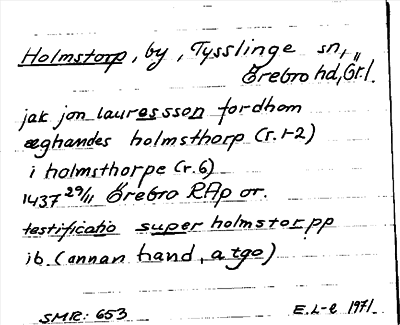 Holmstorp, by, Tysslinge sn,
Örebro hd, Gr.l.
jak jon lauressson fordhom
æghandes holmsthorp (r. 1-2)
i holmsthorpe (r. 6)
1437 29/11 Örebro RAp or.
testificatio super holmstorpp
ib. (annan hand, atgo)
SMR: 653
E.L-e 1971